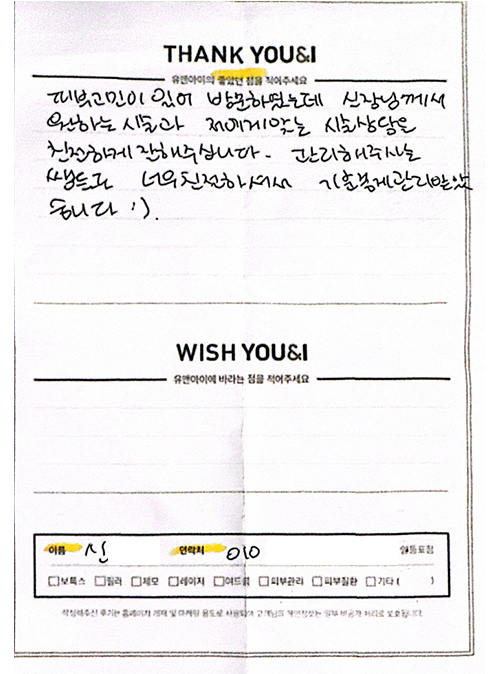 THANK YOU&I
유앤아이의 좋았던 점을 적어주세요
피부고민이 있어 방문하였는데 실장님께서
원하는 시술과 저에게 맞는 시술상담을
친절하게 잘해주십니다. 관리해주시는
쌤들도 너무친절하셔서 기분좋게관리받았
습니다 :).
WISH YOU&I
유앤아이에 바라는 점을 적어주세요
이름 신 연락처 010
보톡스 필러 제모 레이저 여드름 피부관리 피부질환 기타 ( )
작성해주신 후기는 홈페이지 게재 및 마케팅 용도로 사용되며 고객님의 개인정보는 일부 비공개 처리로 보호됩니다.